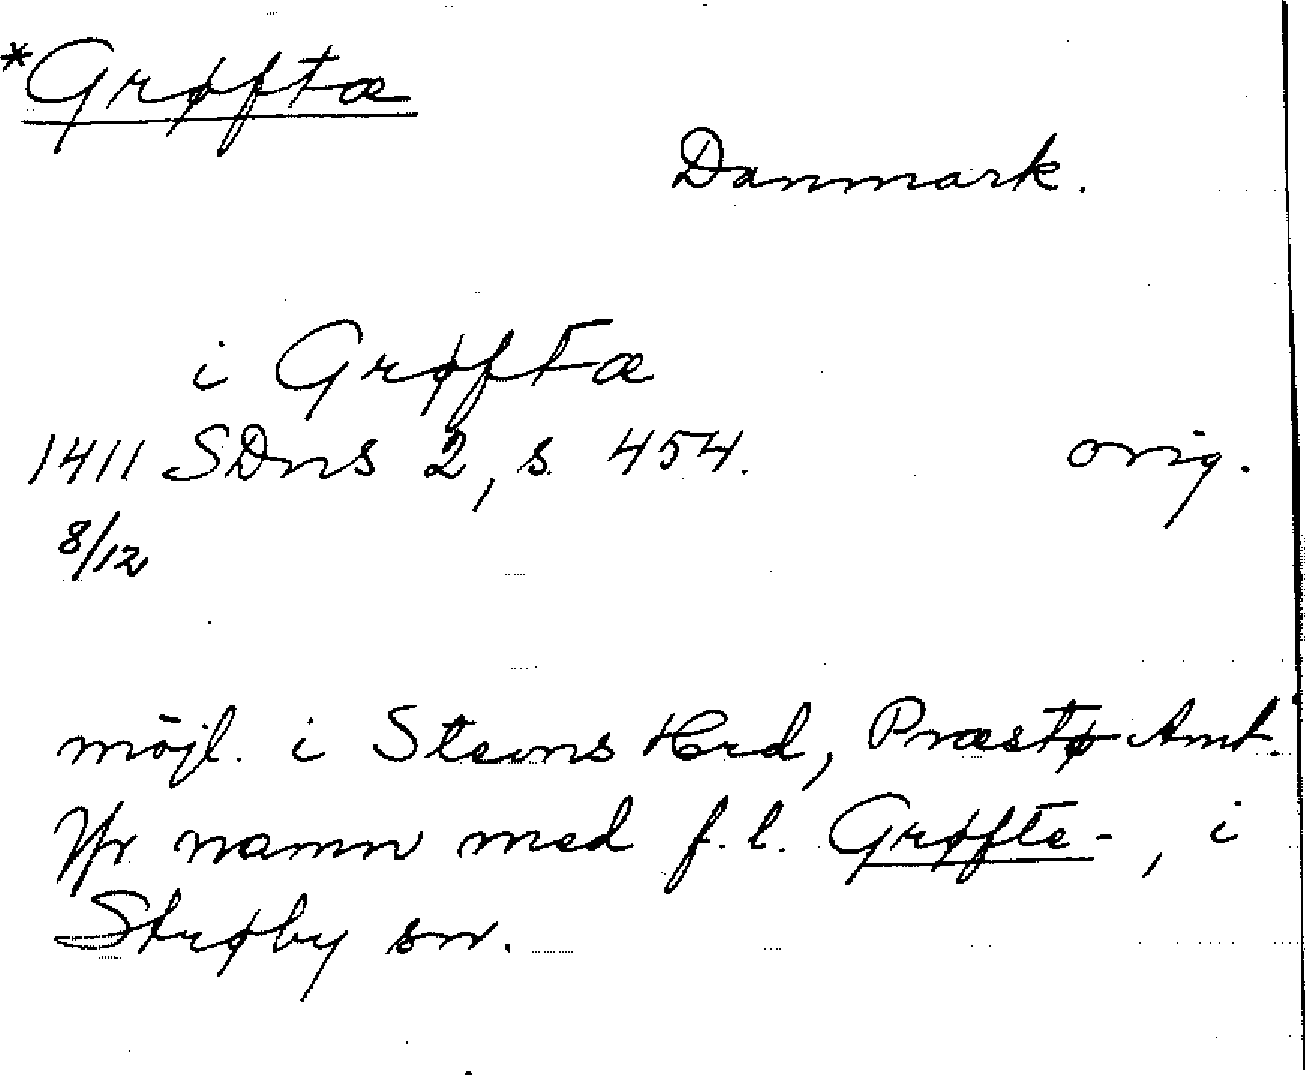 *Grøftæ
Danmark.
i Grøftæ
1411 SDns 2, s. 454. orig.
8/12
möjl. i Stevns Hrd, Præstø Amt.
Jfr namn med f.l. Grøfte-, i
Strøby sn.